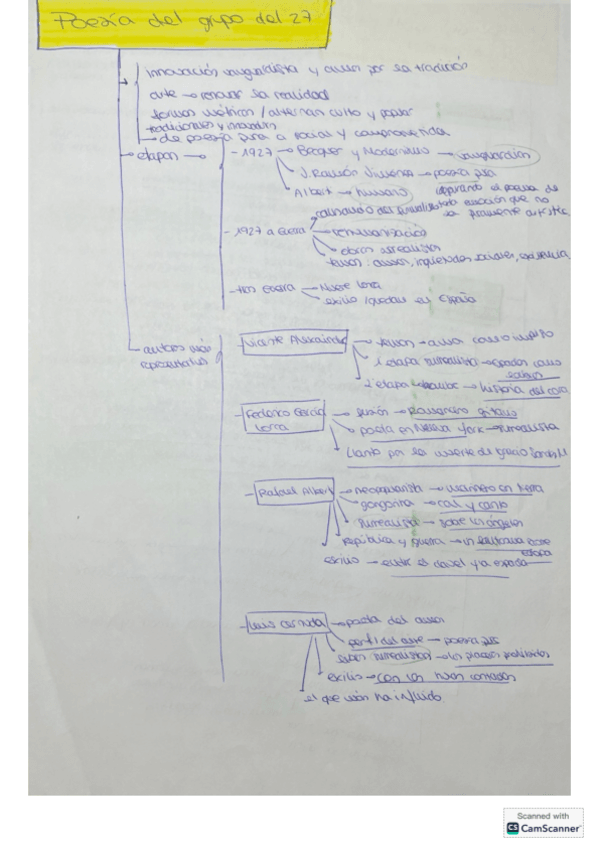 Poesía del grupo del 27
innovación vanguardista y amor por la tradición
arte → renovar la realidad
formas métricas / alternan culto y popular
tradicionales y innovación
→ de poesía pura a social y comprometida
- etapas →
- 1927 → Becquer y Modernismo → vanguardias
J. Ramón Jiménez → poesía pura
Alberti → humano
poema de
emoción que no
sea puramente artística
- 1927 a Guerra
del surrealismo
→ rehumanización
→ obras surrealistas
temas: amor, inquietudes sociales,
- tras Guerra → Muere Lorca
exilio / quedan en España
- autores más
representativos
- Vicente Aleixandre → temas → amor como impulso
1 etapa surrealista → espadas como
labios
2 etapa → historia del cora
- Federico García
Lorca
fusión → Romancero gitano
→ poeta en Nueva York → surrealista
Llanto por la muerte de Ignacio Sánchez M
- Rafael Alberti → neopopularista → marinero en tierra
gongorina → cal y canto
surrealista → sobre los ángeles
república y guerra →
exilio → entre el clavel y la espada
- Luis Cernuda → poeta del amor
perfil del aire → poesía pura
surrealistas → los placeres prohibidos
exilio → con las horas contadas
el que más ha influido
Scanned with
CS CamScanner